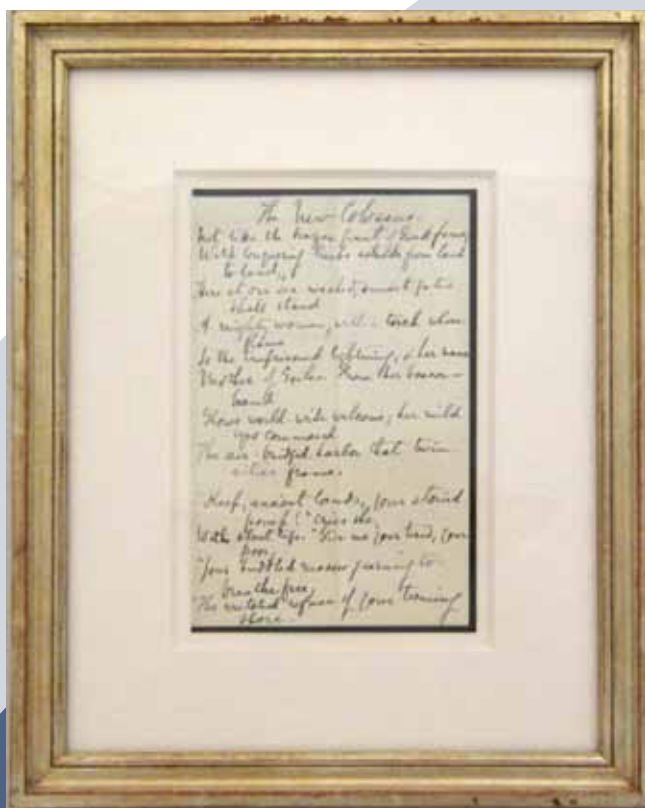 The New Colossus.
Not like the brazen giant of Greek fame
With conquering limbs astride from land
to land,
Here at our sea-washed, sunset gates
shall stand
A mighty woman, with a torch whose
flame
Is the imprisoned lightning, & her name
Mother of Exiles. From her beacon-
hand
Glows world-wide welcome; her mild
eyes command
The air-bridged harbor that twin
cities frame.
"Keep, ancient lands, your storied
pomp!" cries she
With silent lips. "Give me your tired, your
poor,
"Your huddled masses yearning to
breathe free,
"The wretched refuse of your teeming
shore.